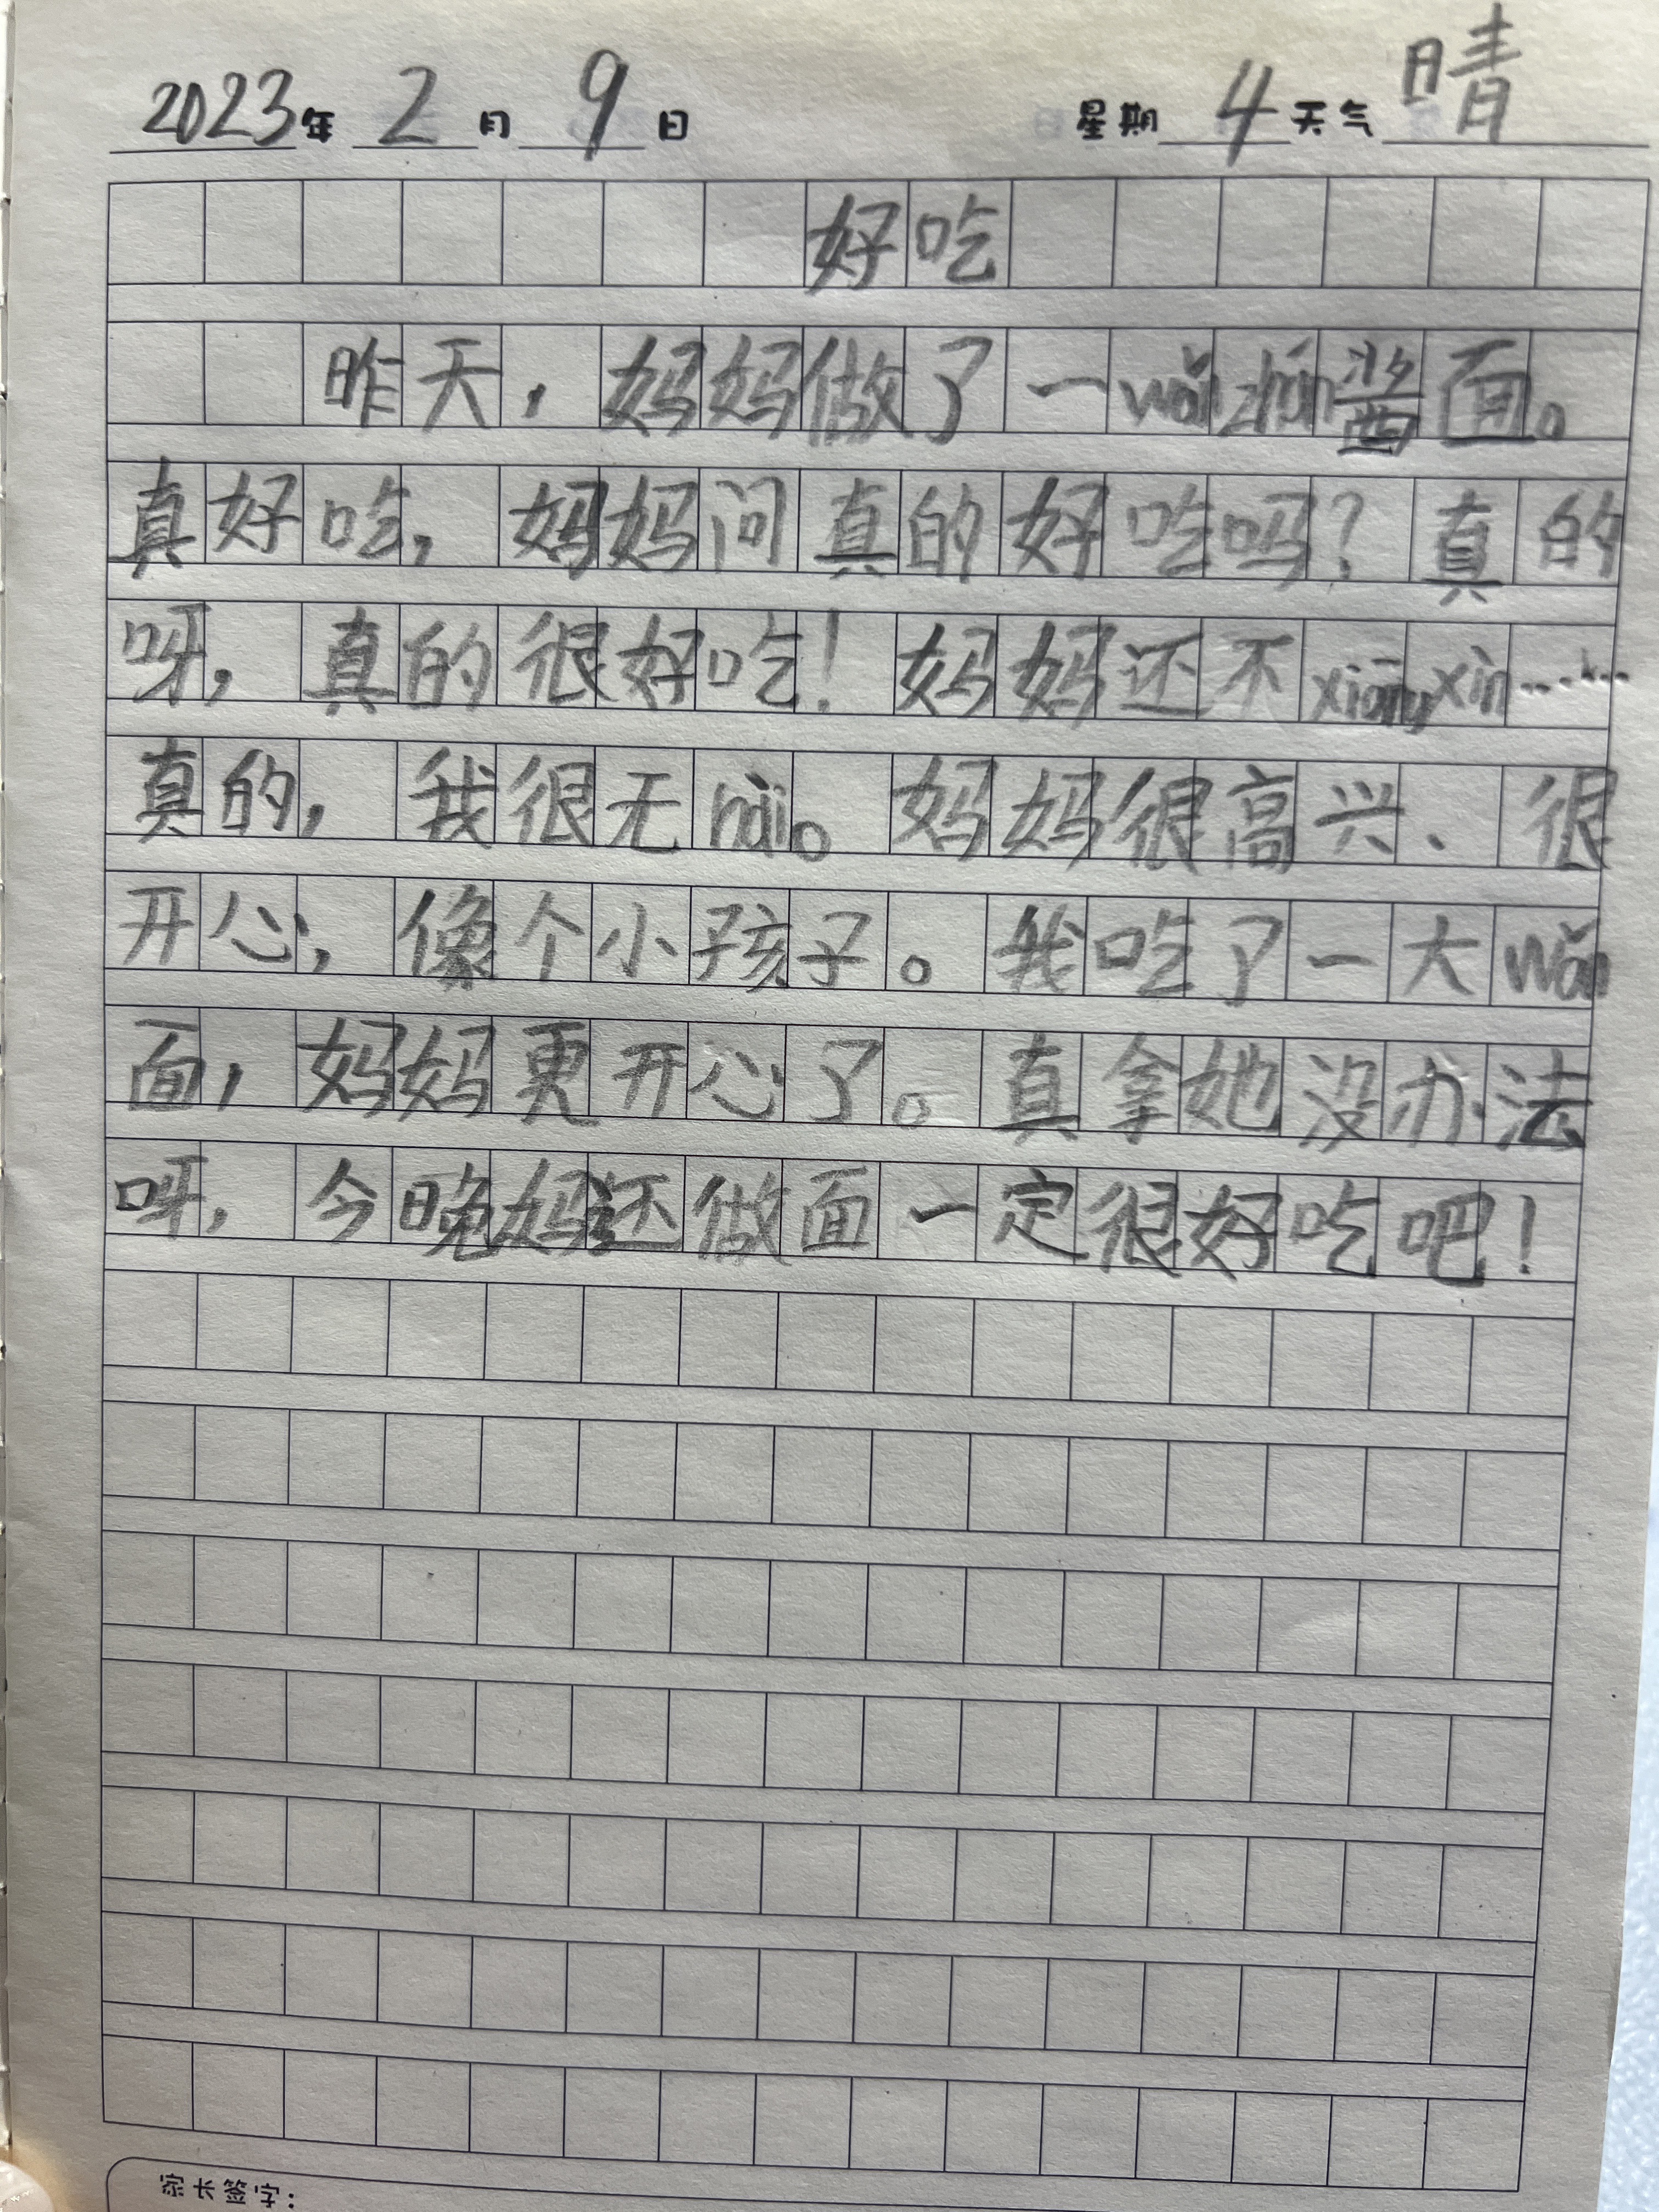 2023年 2 月 9 日 星期 4 天气 晴
好吃
昨天，妈妈做了一wǎn zhá酱面。
真好吃，妈妈问真的好吃吗？真的
呀，真的很好吃！妈妈还不xiāng xìn……
真的，我很无nài。妈妈很高兴、很
开心，像个小孩子。我吃了一大wǎn
面，妈妈更开心了。真拿她没办法
呀，今晚妈还做面一定很好吃吧！
家长签字：